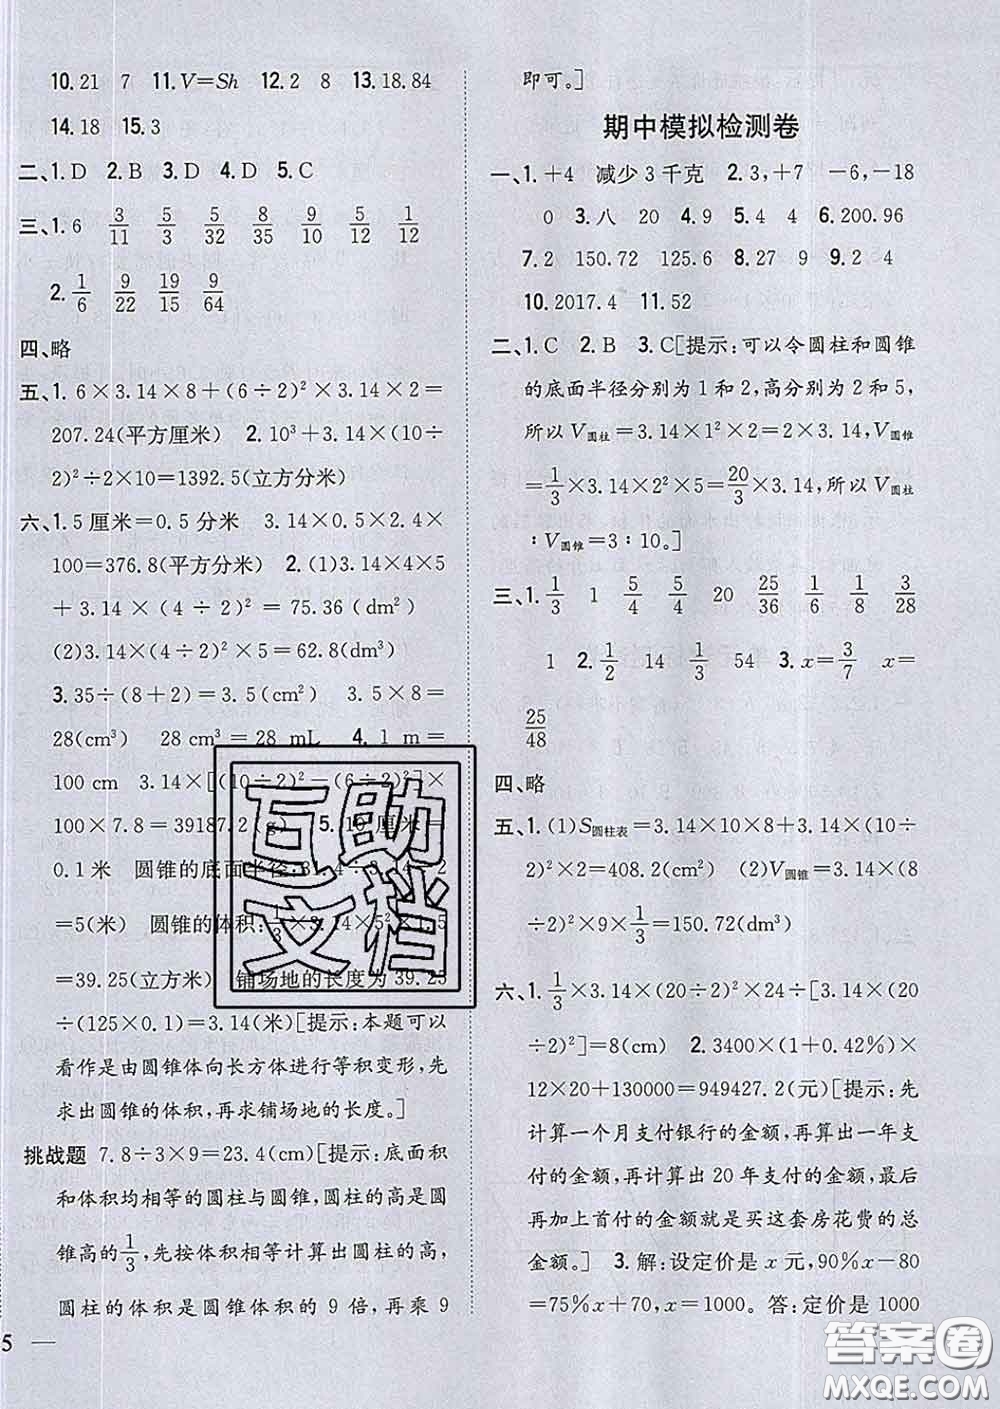 10.21　7　11.V=Sh　12.2　8　13.18.84
14.18　15.3
二、1.D　2.B　3.D　4.D　5.C
三、1.6　3/11　5/3　5/32　8/35　9/10　5/12　1/12
2.1/6　9/22　19/15　9/64
四、略
五、1.6×3.14×8+(6÷2)²×3.14×2=
207.24(平方厘米)　2.10³+3.14×(10÷
2)²÷2×10=1392.5(立方分米)
六、1.5厘米=0.5分米　3.14×0.5×2.4×
100=376.8(平方分米)　2.(1)3.14×4×5
+3.14×(4÷2)²=75.36(dm²)
(2)3.14×(4÷2)²×5=62.8(dm³)
3.35÷(8+2)=3.5(cm²)　3.5×8=
28(cm³)　28 cm³=28 mL　4.1 m=
100 cm　3.14×[(10÷2)²-(6÷2)²]×
100×7.8=39187.2(g)　5.10厘米=
0.1米　圆锥的底面半径:31.4÷3.14÷2
=5(米)　圆锥的体积:1/3×3.14×5²×1.5
=39.25(立方米)　铺场地的长度为39.25
÷(125×0.1)=3.14(米)[提示:本题可以
看作是由圆锥体向长方体进行等积变形,先
求出圆锥的体积,再求铺场地的长度。]
挑战题　7.8÷3×9=23.4(cm)[提示:底面积
和体积均相等的圆柱与圆锥,圆柱的高是圆
锥高的1/3,先按体积相等计算出圆柱的高,
圆柱的体积是圆锥体积的9倍,再乘9
5 —
即可。]
期中模拟检测卷
一、1.+4　减少3千克　2.3,+7　-6,-18
0　3.八　20　4.9　5.4　4　6.200.96
7.2　150.72　125.6　8.27　9　9.2　4
10.2017.4　11.52
二、1.C　2.B　3.C[提示:可以令圆柱和圆锥
的底面半径分别为1和2,高分别为2和5,
所以V圆柱=3.14×1²×2=2×3.14,V圆锥
=1/3×3.14×2²×5=20/3×3.14,所以V圆柱
:V圆锥=3:10。]
三、1.1/3　1　5/4　5/4　20　25/36　1/6　1/8　3/28
1　2.1/2　14　1/3　54　3.x=3/7　x=
25/48
四、略
五、1.(1)S圆柱表=3.14×10×8+3.14×(10÷
2)²×2=408.2(cm²)　(2)V圆锥=3.14×(8
÷2)²×9×1/3=150.72(dm³)
六、1.1/3×3.14×(20÷2)²×24÷[3.14×(20
÷2)²]=8(cm)　2.3400×(1+0.42%)×
12×20+130000=949427.2(元)[提示:先
计算一个月支付银行的金额,再算出一年支
付的金额,再计算出20年支付的金额,最后
再加上首付的金额就是买这套房花费的总
金额。]　3.解:设定价是x元,90%x-80
=75%x+70,x=1000。答:定价是1000
互助
文档
答案圈
MXQE.COM